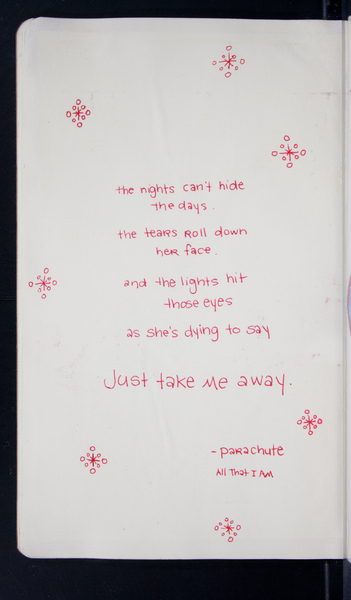 the nights can't hide
the days.
the tears roll down
her face.
and the lights hit
those eyes
as she's dying to say
Just take me away.
- parachute
All That I Am